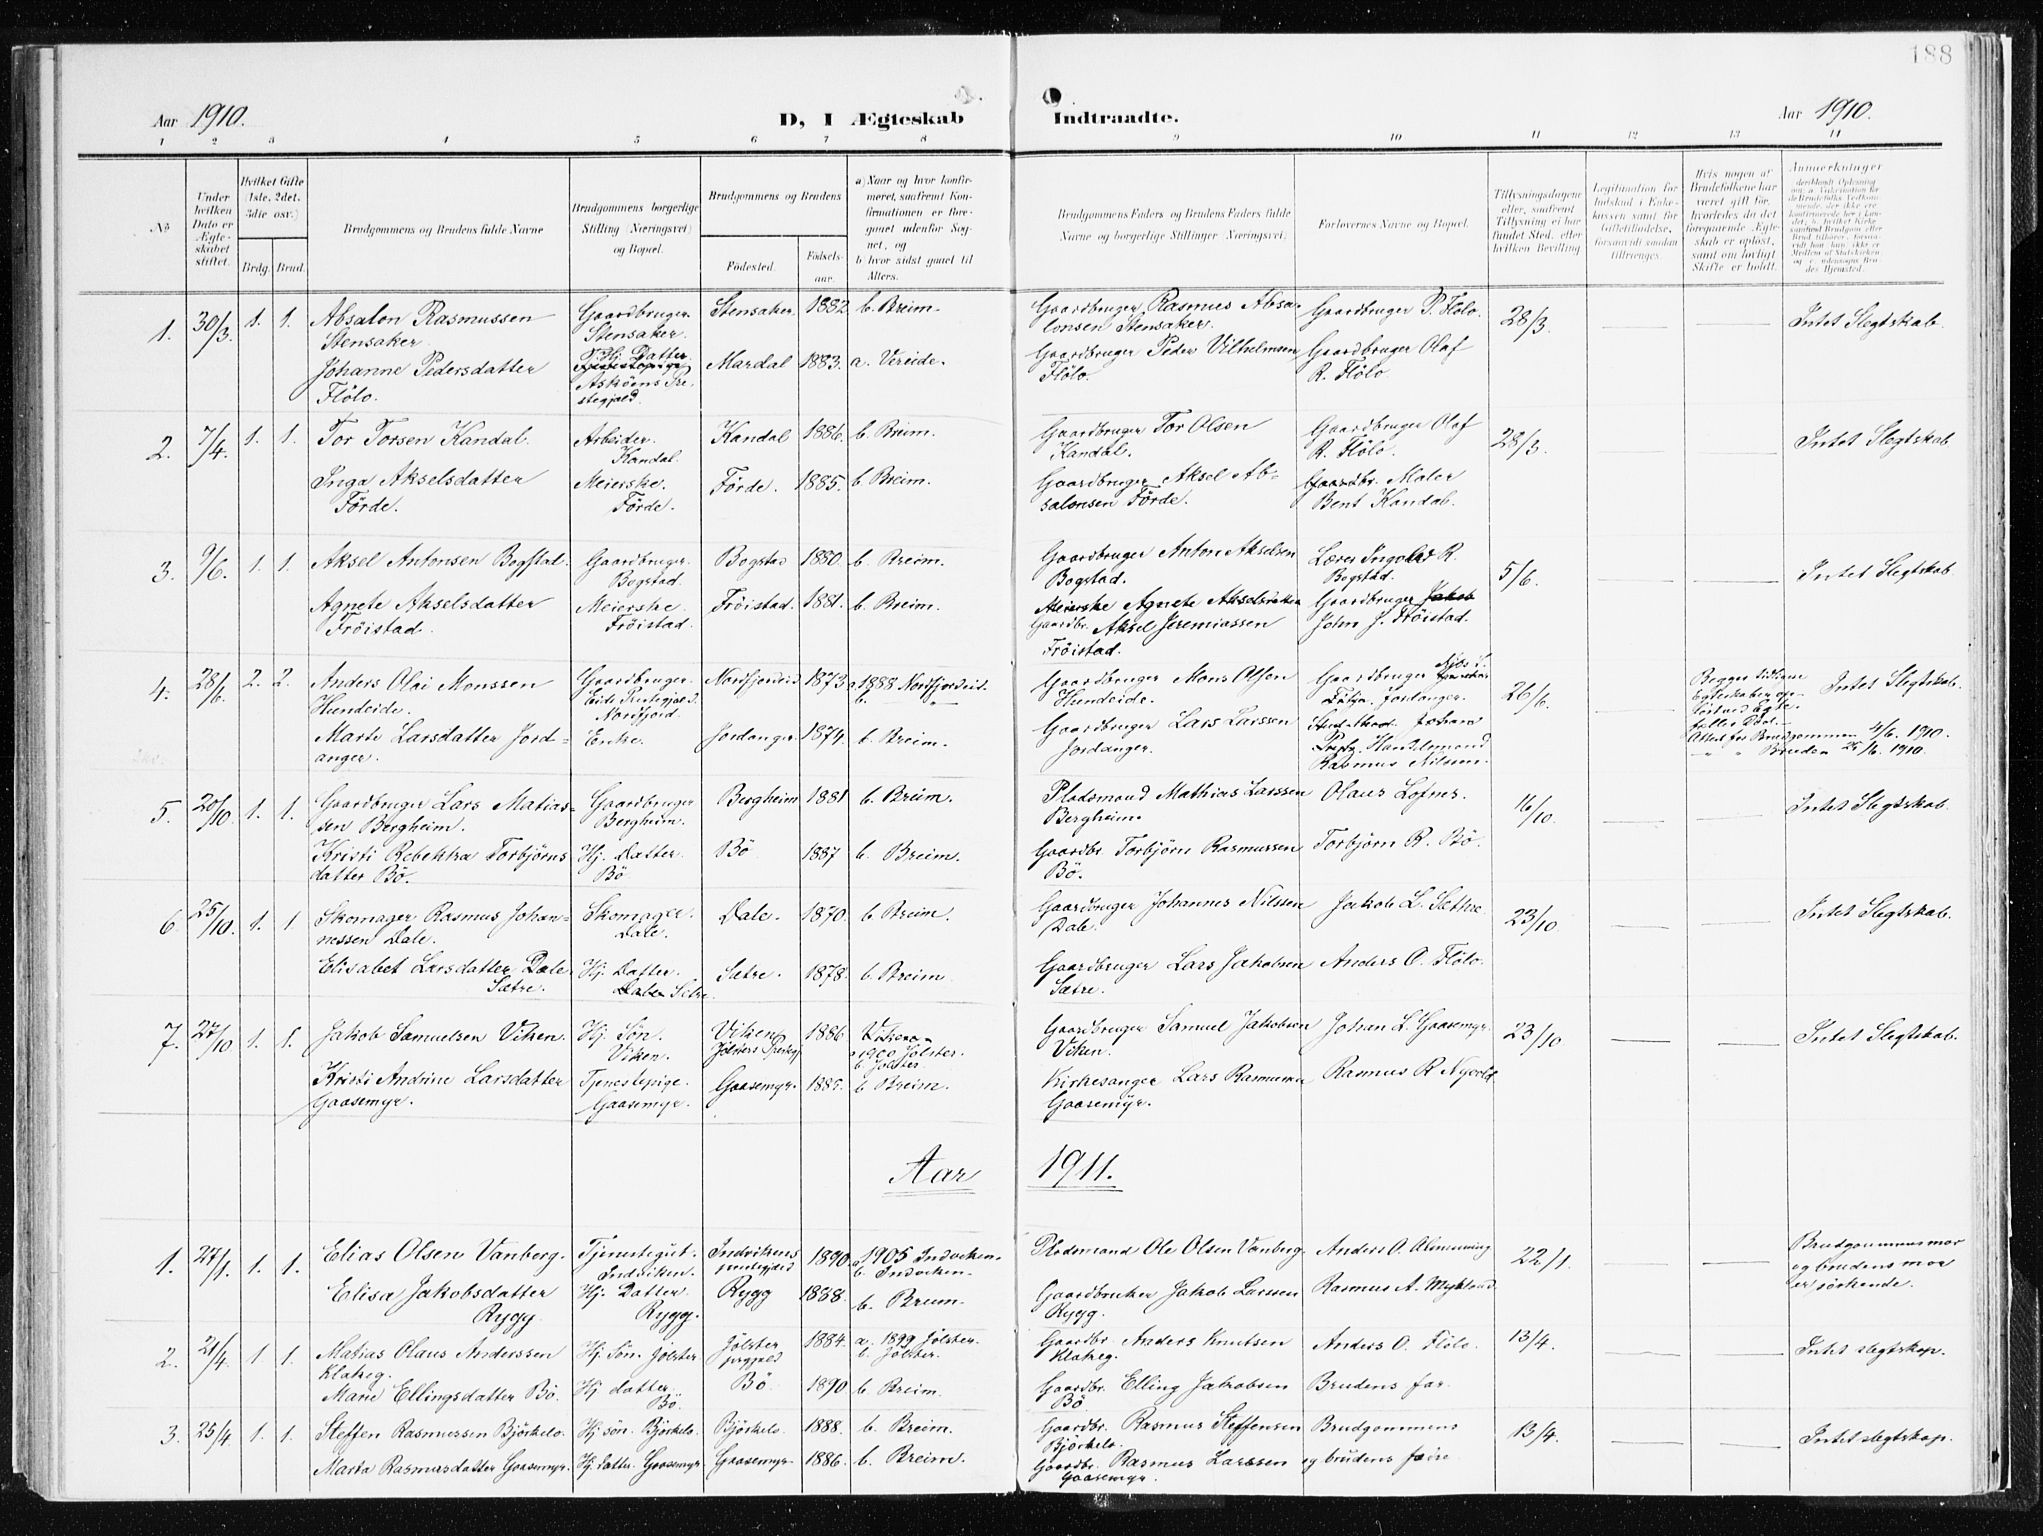 188
Aar 1910. D, I Ægteskab Indtraadte. Aar 1910.
1 2 3 4 5 6 7 8 9 10 11 12 13 14
No
Under hvilken Dato er Ægteskabet stiftet.
Hvilket Gifte (1ste, 2det, 3die osv.)
Brdg. Brud.
Brudgommens og Brudens fulde Navne
Brudgommens borgerlige Stilling (Næringsvei) og Bopæl.
Brudgommens og Brudens
Fødested.
Fødselsaar.
a) Naar og hvor konfirmeret, saafremt Konfirmationen er foregaaet udenfor Sognet, og
b) hvor sidst gaaet til Alters.
Brudgommens Faders og Brudens Faders fulde Navne og borgerlige Stillinger (Næringsvei).
Forlovernes Navne og Bopæl.
Tillysningsdagene eller, saafremt Tillysning ei har fundet Sted, efter hvilken Bevilling
Legitimation for Indskud i Enkekassen samt for Giftetilladelse, forsaavidt saadan tiltrænges.
Hvis nogen af Brudefolkene har været gift før, hvorledes da det foregaaende Ægteskab er opløst, samt om lovligt Skifte er holdt.
Anmerkninger
1. 30/3. 1. 1. Absalon Rasmussen Stensaker. Gaardbruger. Stensaker. Stensaker. 1882 b. Breim. Gaardbruger Rasmus Absalonsen Stensaker. Gaardbruger P. Flölo. 28/3. Intet Slegtskab.
Johanne Pedersdatter Flölo. Hj. Datter. Askøens Prestegjæld. Mardal 1883. a. Vereide. Gaardbruger Peder Vilhelmsen Flölo. Gaardbruger Olaf R. Flölo.
2. 7/4. 1. 1. Tor Torsen Kandal. Arbeider. Kandal. Kandal 1886. b. Breim. Gaardbruger Tor Olsen Kandal. Gaardbruger Olaf R. Flölo. 28/3. Intet Slegtskab
Inga Akselsdatter Förde. Meierske. Förde. Förde. 1885. b Breim. Gaardbruger Aksel Absalonsen Förde. Gaardbr. Maler Bent Kandal.
3. 9/6. 1. 1. Aksel Antonsen Bogstad. Gaardbruger. Bogstad. Bogstad 1880. b. Breim. Gaardbruger Anton Akselsen Bogstad. Lærer Ingolv R. Bogstad. 5/6. Intet Slegtskab
Agnete Akselsdatter Fröistad. Meierske. Fröistad. Fröistad. 1881. b. Breim. Meierske Agnete Akselsdatter Gaardbr. Aksel Jeremiassen Fröistad. Gaardbruger Jakob John J. Fröistad.
4. 28/6. 2. 2. Anders Olai Monssen Hundeide. Gaardbruger. Eids Prestegjæld. Nordfjord. Nordfjordeid 1873 a. 1888 Nordfjordeid. b. Gaardbruger Mons Olsen Hundeide. Gaardbruger Jordanger. 26/6. Begges sidste Egteskaber oplöst ved Egtefælles Död. Attest for Brudgommen 4/6. 1910. " " Bruden 25/6. 1910. Intet Slegtskab.
Marte Larsdatter Jordanger. Enke. Jordanger. 1874. b. Breim. Gaardbruger Lars Larssen Jordanger. Johan Rasmus Nilssen.
5. 20/10. 1. 1. Gaardbruger Lars Matiassen Bergheim. Gaardbruger Bergheim. Bergheim 1881 b. Breim. Pladsmand Mathias Larssen Bergheim. Olaus Lofnes. 16/10. Intet Slegtskab.
Kristi Rebekka Torbjörnsdatter Bö. Hj. Datter. Bö Bö 1887 b. Breim. Gaardbr. Torbjörn Rasmussen Bö. Torbjörn R. Bö.
6. 25/10. 1. 1. Skomager Rasmus Johannessen Dale. Skomager. Dale. Dale. 1870. b. Breim. Gaardbruger Johannes Nilssen Dale. Jakob L. Sættre. 23/10. Intet Slegtskab.
Elisabet Larsdatter Dale Sætre. Hj. Datter. Dale Sætre Sætre. 1878. b. Breim. Gaardbruger Lars Jakobsen Sætre. Anders O. Flölo.
7. 27/10 1. 1. Jakob Samuelsen Viken. Hj. Sön. Viken. Viken Jölsters Prestegj. 1886 Viken a. 1900 Jölster. b. Jölster. Gaardbruger Samuel Jakobsen Viken. Johan L. Gaasemyr. 23/10 Intet Slegtskab.
Kristi Andrine Larsdatter Gaasemyr. Tjenestepige. Gaasemyr. Gaasemyr. 1885. b Breim. Kirkesanger Lars Rasmussen Gaasemyr. Rasmus R Nyvold.
Aar 1911.
1. 27/1. 1. 1. Elias Olsen Vanberg. Tjenestegut. Indviken. Indvikens prestegjæld 1890 a. 1905 Indviken. b. Indviken. Pladsmand Ole Olsen Vanberg. Anders O. Almenning 22/1. Brudgommens mor og brudens mor er sörkende.
Elisa Jakobsdatter Rygg. Hj. Datter. Rygg. Rygg 1888. b. Breim. Gaardbruker Jakob Larssen Rygg. Rasmus A. Mykland.
2. 21/4. 1. 1. Matias Olaus Anderssen Klakeg. Hj. Sön. Jölster Jölster prgjæld 1884. a. 1899 Jölster. b. Jölster. Gaardbr. Anders Knutsen Klakeg. Anders O. Flölo. 13/4. Intet slegtskap.
Marie Ellingsdatter Bö. Hj datter. Bö. Bö 1890 b. Breim. Gaardbr. Elling Jakobsen Bö Brudens far.
3. 25/4 1. 1. Steffen Rasmussen Bjørkelo. Hj. sön. Bjørkelo. Bjørkelo. 1888. b. Breim. Gaardbr. Rasmus Steffensen Bjørkelo. Brudgommens 13/4. Intet slegtskap.
Marta Rasmusdatter Gaasemyr. Hj. datter. Gaasemyr Gaasemyr. 1886. b. Breim. Gaardbr. Rasmus Larssen Gaasemyr. og brudens fædre.